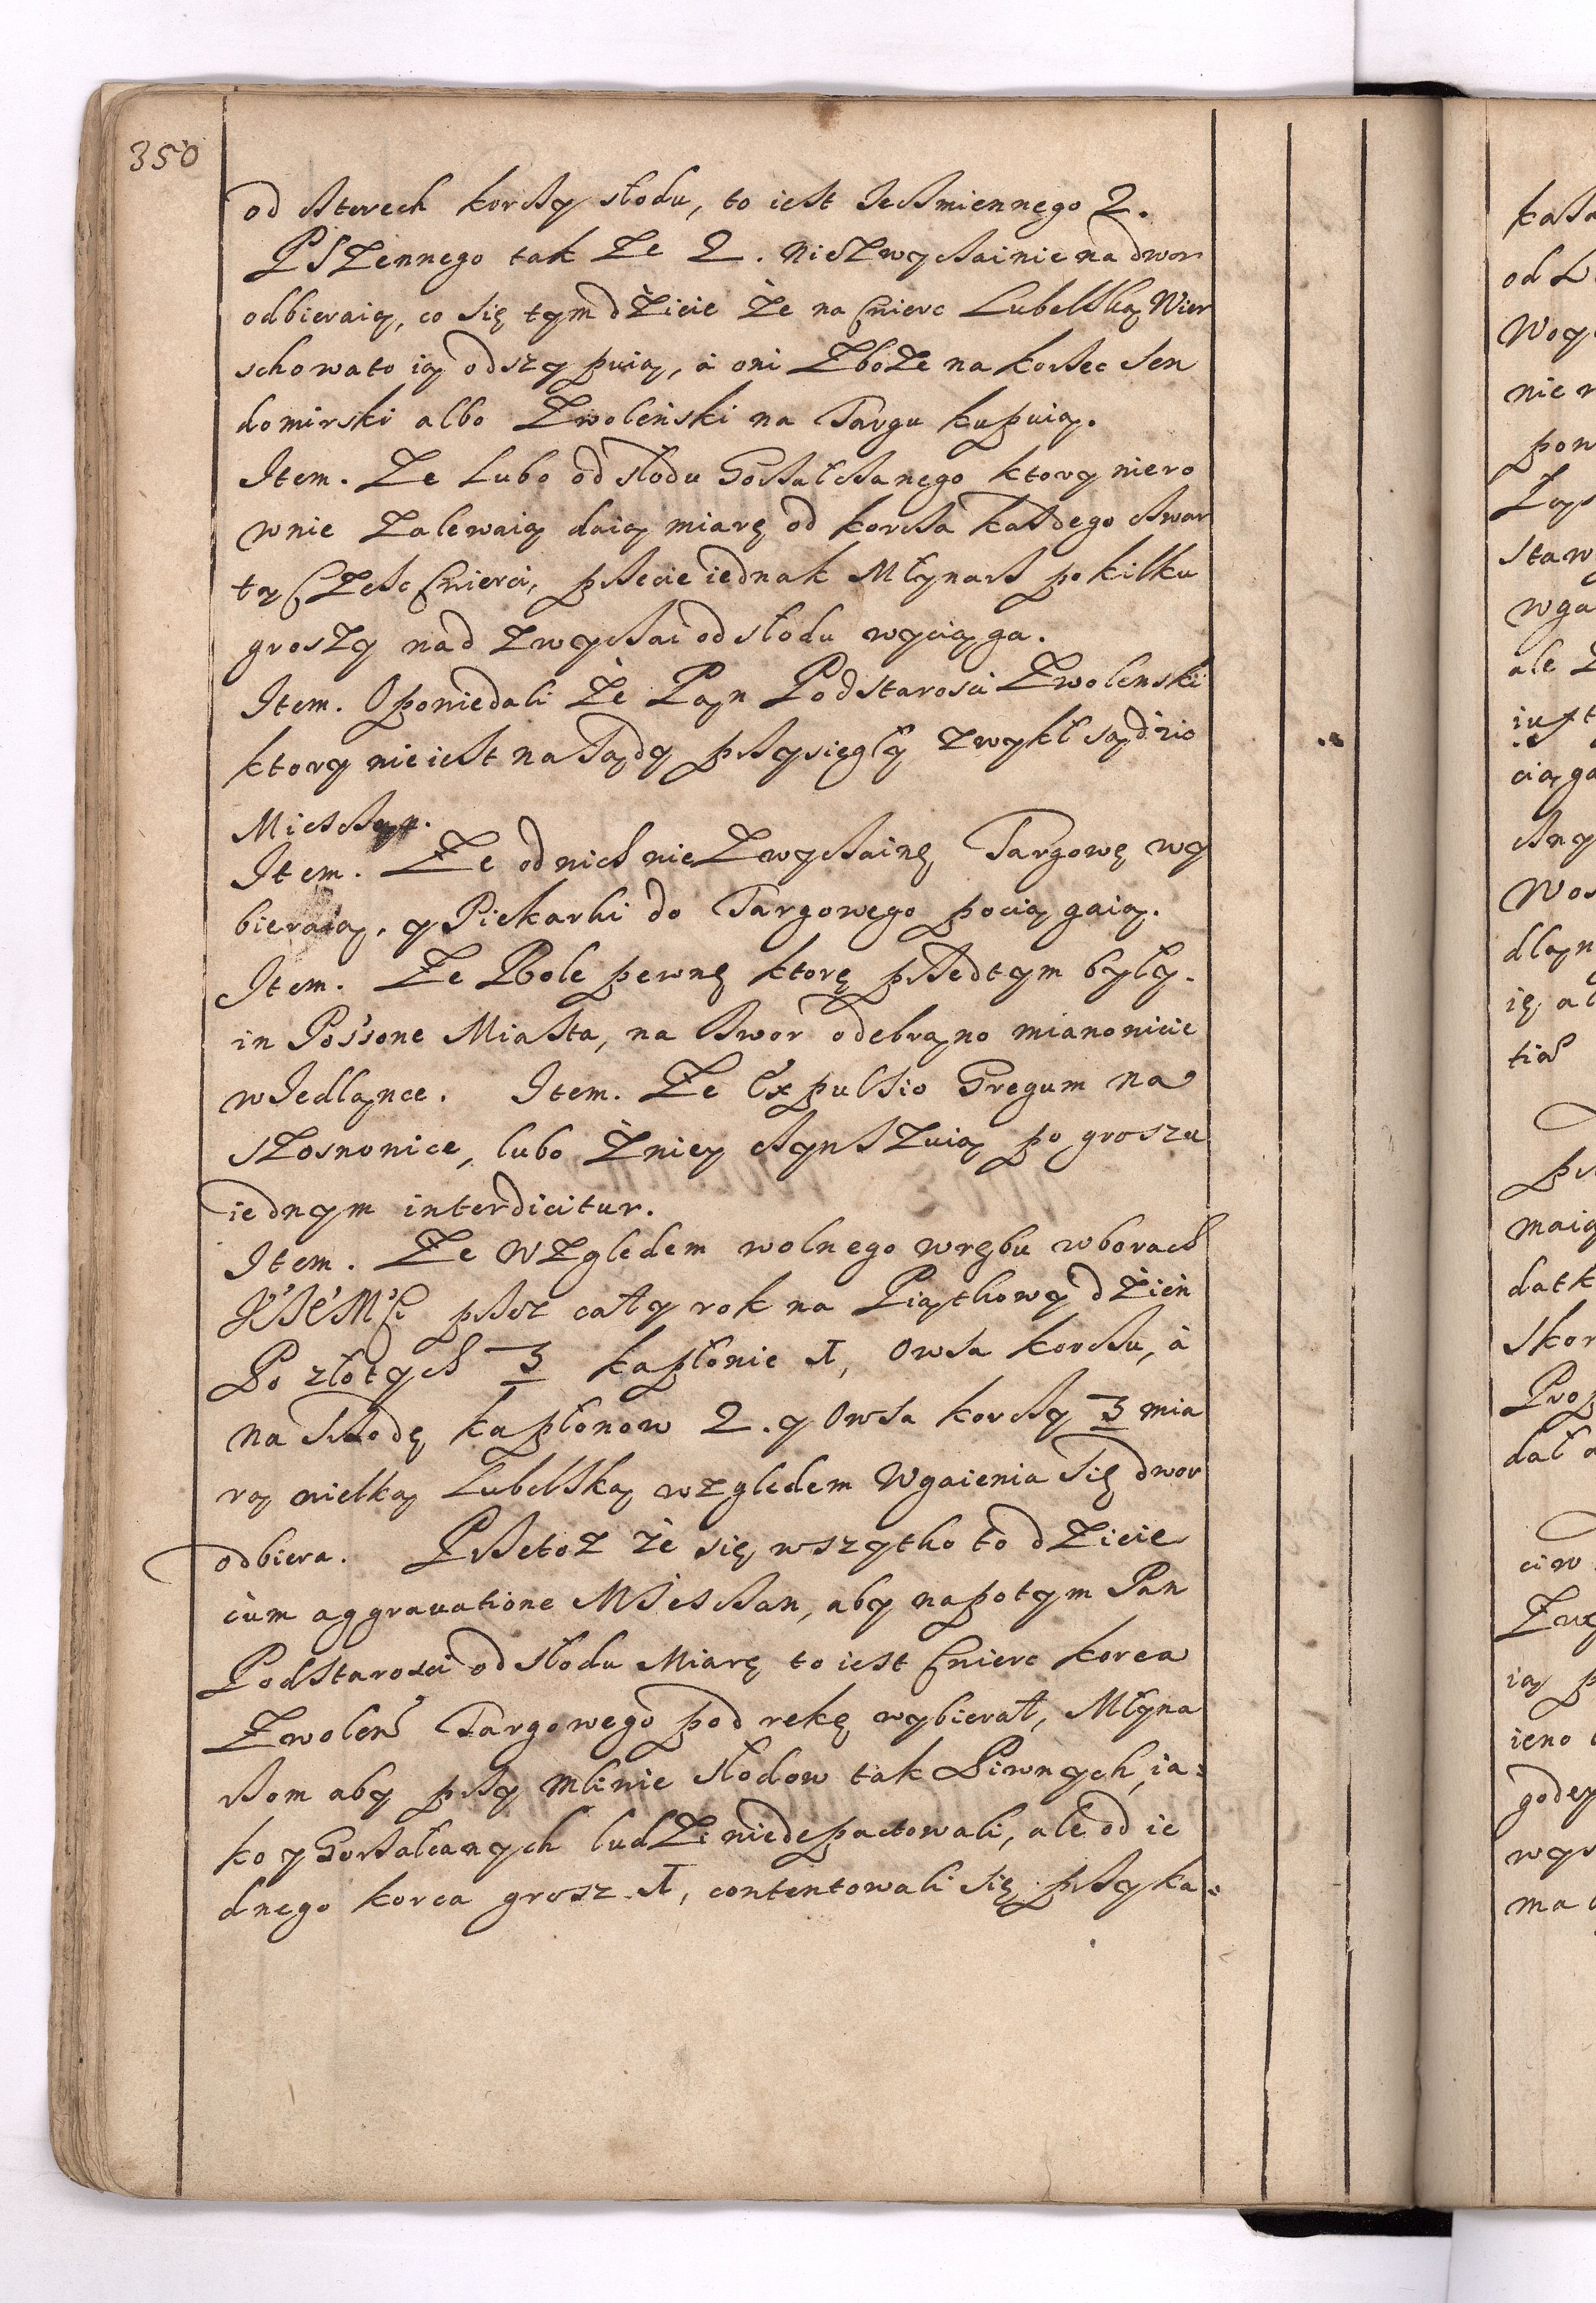 350
od czterech korczy słodu, to iest Jeczmiennego 2.
Pszennego tak ze 2. niezwyczainie na dwor
odbieraią, co się tym dzieie że na cwierc Lubelską Wier
schowato ią odszypuią, á oni zboze na korzec Sen
domirski albo Zwoleński na Targu kupuią.
Item. Ze Lubo od słodu Gorzałczanego ktory niero
wnie zalewaią daią miarę od korcza każdego czwar
tą część cwierci, przecie iednak Młynarz po kilku
groszy nad zwyczai od słodu wyciąga.
Item. Opowiedali że Pąn Podstarosci Zwolenski
ktory nie iest na sądy przysięgły zwykł sądzic
Mieszczan.
Item. Ze od nich nie zwyczainę Targowę wy
bieraią, y Piekarki do Targowego pociągaią.
Item. Ze Role pewnę ktorę przedtym były.
in Possone Miasta, na dwor odebrąno mianowicie
w Jedląnce. Item. Ze Expulsio Gregum na
szosnowice, lubo żniey czynszuią po groszu
iednym interdicitur.
Item. Ze względem wolnego wrębu w borach
JEJEMCi przez cały rok na Piątkowy dzień
Po złotych 3 kapłonie 1, Owsa korczu, á
na Srzodę kapłonow 2. y Owsa korczy 3 mia
rą wielką Lubelską względem Wgaienia się dwor
odbiera. Przetoz że się wszytko to dzieie
cum aggravatione Mieszczan, aby napotym Pan
Podstarosci od słodu Miarę to iest cwierc korca
Zwolen Targowego pod rekę wybierał, Młyna
rzom aby przy mliwie słodow tak Piwnych, ia:
ko y Gorzałcanych ludzi niedepactowali, ale od ie
dnego korca grosz 1, contentowali się przy ka: